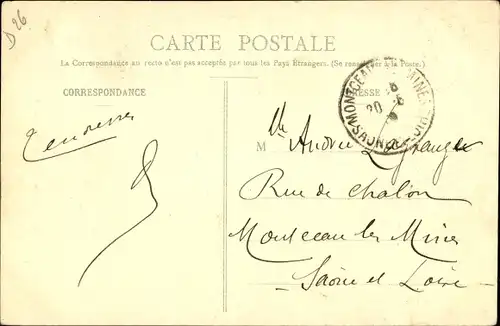 D 26
CARTE POSTALE
La Correspondance au recto n'est pas acceptée par tous les Pays Étrangers. (Se renseigner à la Poste)
CORRESPONDANCE
ADRESSE
MONTCEAU-LES-MINES
SAONE-ET-LOIRE
Tendresses
M lle Andrée Lagrange
Rue de Chalon
Montceau les Mines
Saône et Loire